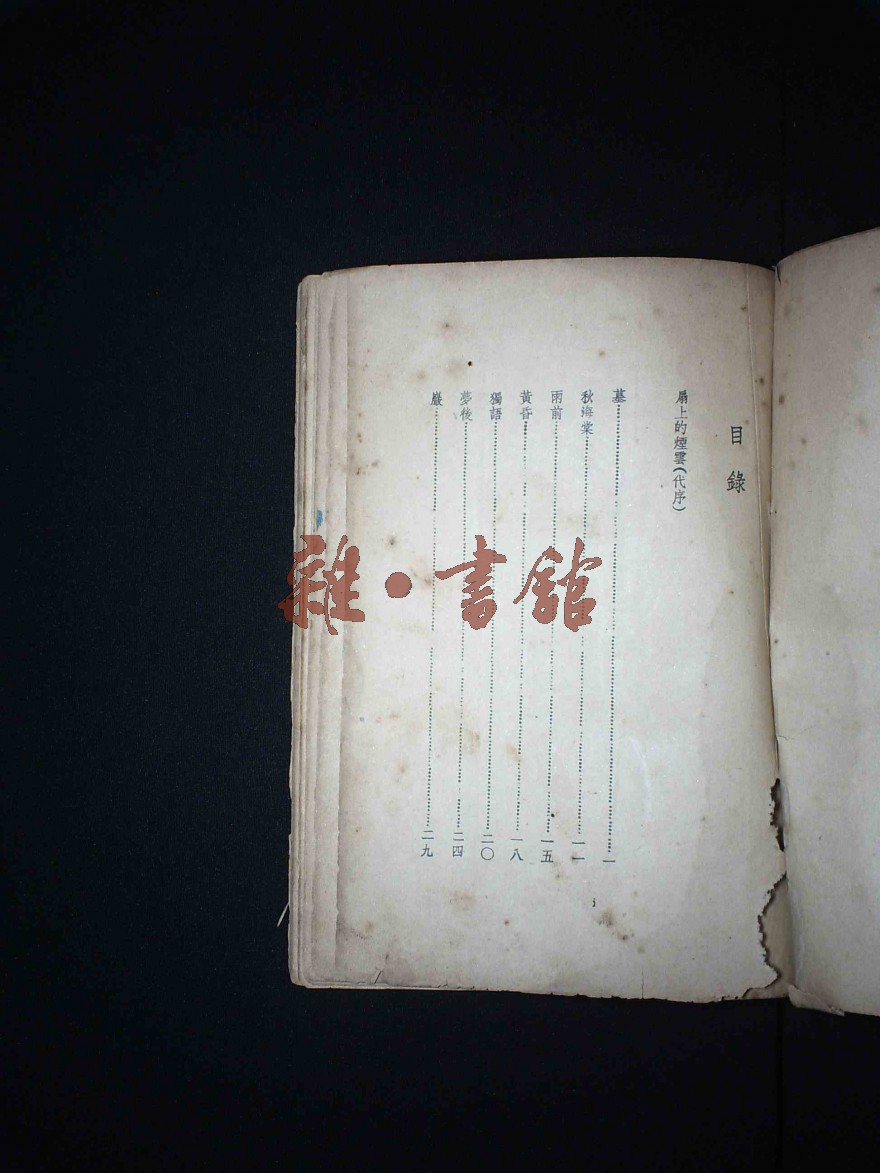 目錄
扇上的煙雲(代序)
墓……一
秋海棠……一一
雨前……一五
黃昏……一八
獨語……二〇
夢後……二四
巖……二九
i
雜·書館